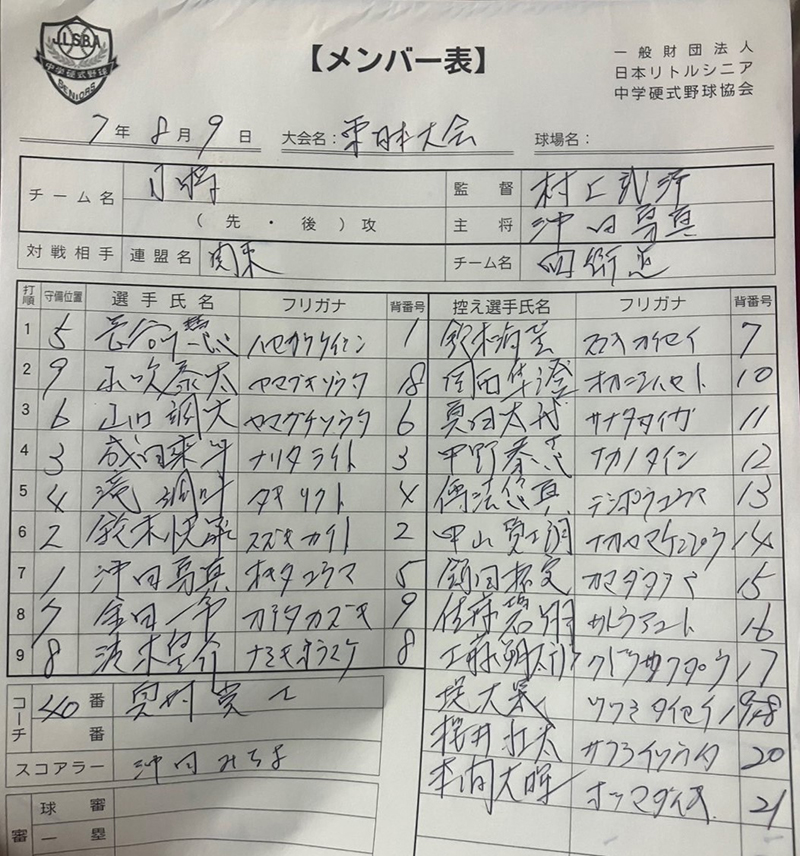 JLSBA
中学硬式野球
SENIORS
【メンバー表】
一般財団法人
日本リトルシニア
中学硬式野球協会
7年 8月 9日 大会名：東日本大会 球場名：
チーム名
（先・後）攻
監督 村上
主将 沖田勇真
対戦相手 連盟名 関東 チーム名
打順 守備位置 選手氏名 フリガナ 背番号 控え選手氏名 フリガナ 背番号
1 5 長谷川慧 ハセガワケイシン 1 鈴木 スズキカイセイ 7
2 9 山吹奏太 ヤマブキソウタ 18 岡西 オカニシハヤト 10
3 6 山口調大 ヤマグチソウタ 6 真田大我 サナダタイガ 11
4 3 成田来斗 ナリタライト 3 中野泰芯 ナカノタイシン 12
5 4 滝 タキリクト 4 傳法悠真 デンポウユウマ 13
6 2 鈴木 スズキカイト 2 中山賢士朗 ナカヤマケンシロウ 14
7 1 沖田勇真 オキタユウマ 5 鎌田 カマダ 15
8 7 金田一希 カネタカズキ 9 佐藤碧翔 サトウアオト 16
9 8 波木 ナミキ 8 工藤朔太郎 クドウサクタロウ 17
コーチ 40番 奥村 堤大晟 ツツミタイセイ 19
番 桜井壮太 サクライソウタ 20
スコアラー 沖田みちよ 本間大暉 ホンマダイキ 21
球審
一塁
審